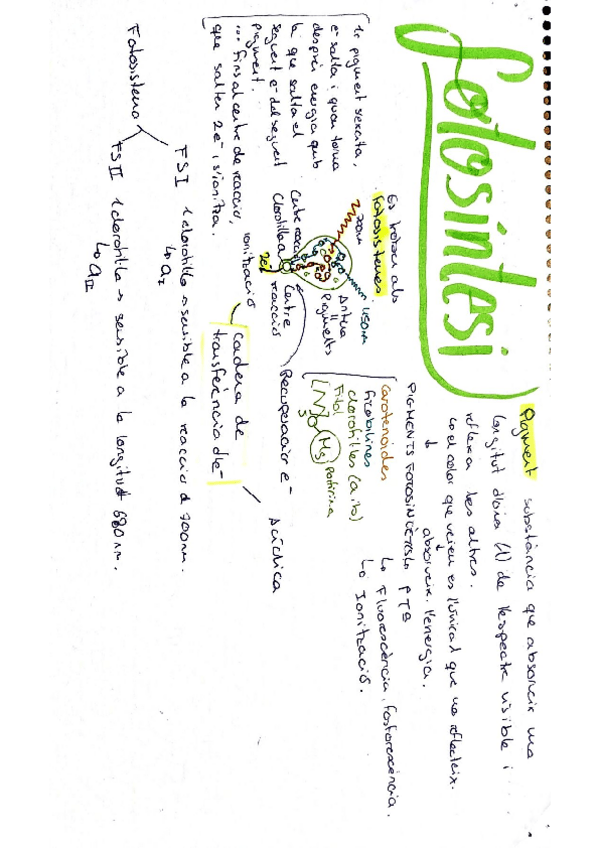 fotosíntesi
Pigment substància que absorveix una
longitut d'ona (λ) de l'espectre visible i
reflexa les altres.
↳ el color que veiem és l'únical que no reflecteix.
↓
absorveix l'energia.
PIGMENTS FOTOSINTÈTICS
↳ Fluorescència, fosforescència.
↳ Ionització.
carotenoides
ficobilines
clorofil·les (a, b)
[N] Mg porfirina
Fitol
Es troben als
Fotosistemes.
700nm
450nm
Antena
=
Pigments
Centre reacció
Clorofil·la a
Centre
reacció
2e⁻
ionització
Recuperació e⁻
cadena de
transferència d'e⁻
Acíclica
1r pigment s'excita,
e⁻ salta i quan torna
desprèn energia amb
la que salta el
següent e⁻ del següent
pigment.
... fins al centre de reacció,
que salten 2e⁻, s'ionitza.
Fotosistema
FSI 1 clorofil·la → sensible a la reacció d 700nm.
↳ a I
FSII 1 clorofil·la → sensible a la longitut 680nm.
↳ a II